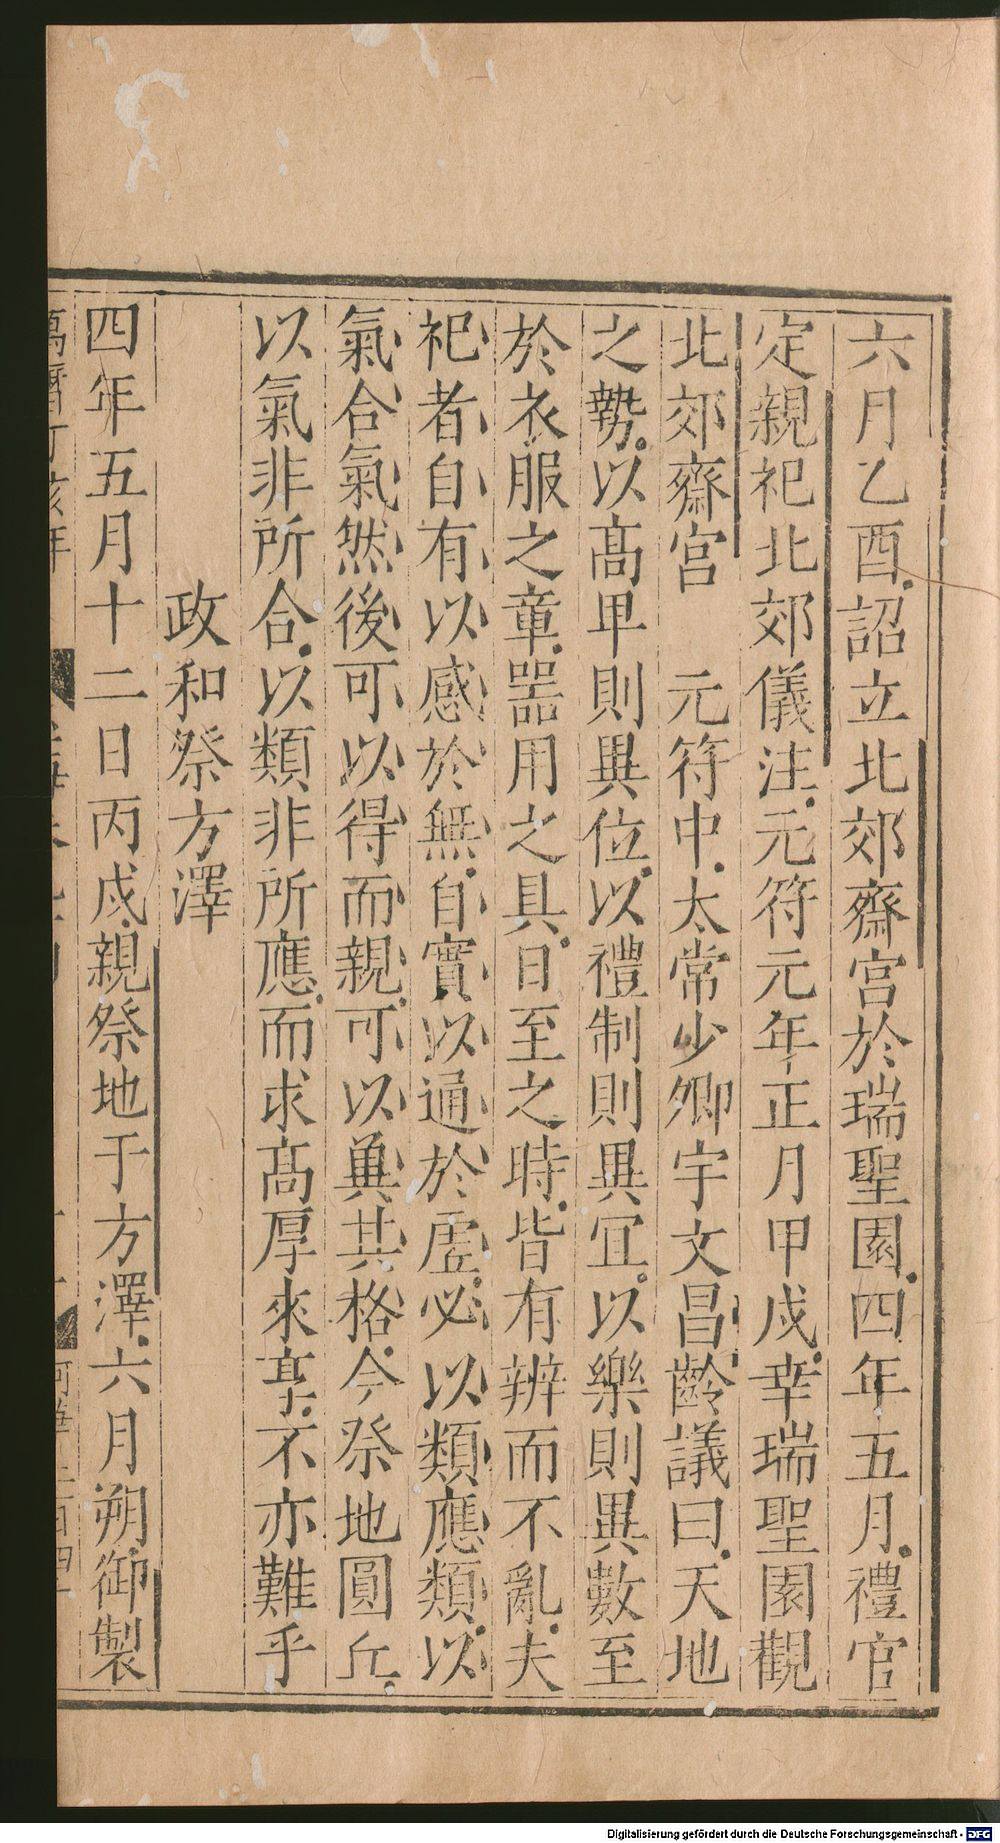 六月乙酉詔立北郊齋宮於瑞聖園四年五月禮官
定親祀北郊儀注元符元年正月甲戌幸瑞聖園觀
北郊齋宮　元符中太常少卿宇文昌齡議曰天地
之勢以高卑則異位以禮制則異冝以樂則異數至
於衣服之章器用之具日至之時皆有辨而不亂夫
祀者自有以感於無自實以通於虛必以類應類以
氣合氣然後可以得而親可以冀其格今祭地圓丘
以氣非所合以類非所應而求高厚來享不亦難乎
政和祭方澤
四年五月十二日丙戌親祭地于方澤六月朔御製
Digitalisierung gefördert durch die Deutsche Forschungsgemeinschaft - DFG